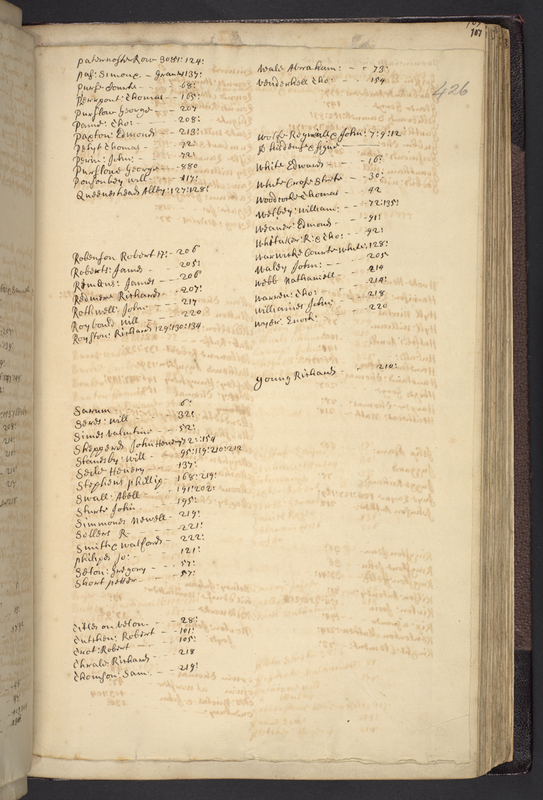 107
426
paternoster Row 30:81:124:
purse Courte - 68:
pierrpont: Thomas - 165:
Purslow George - 207
Paine: Tho: - 208:
Paxton: Edmond - 213:
Petyt Thomas - 72:
Perin: John: - 72:
Purslowe George - 880
Ponsonbey will - 117:
Queenes head Alley: 127:128:
Robenson Robert 17: - 206
Roberts: James - 205:
Romans: James - 206
Redmere Richard - 207:
Rothwell: John - 217
Roybould Will - 220
Royston: Richard 129:130:134
Sarum - 6:
Seres: will - 32:
Simes Valentine - 52:
Shepperd John Henry 72:154
Stansby: Will - 95:119:210:212
Seile Henery - 137:
Stephens phillip: - 168:219:
Swall: Abell - 191:202:
Sturte John - 195:
Simmones Newell - 219:
Sollers R - 221:
Smith & Walford - 222:
philipes Jo: - 121:
Seton: Gregory - 57:
Short petter - 57:
Titles on Velom - 28:
Tutchen: Robert - 101:
Trot: Robert - 105:
Thrale: Richard - 218
Thomson: Sam: - 219:
Veale Abraham: - 73:
Venderhell Tho: - 154
Wolfe Reynould & John: 7:9:12
White Edward - 16:
White Crose Strete - 30:
Woodcocke Thomas - 42
Welbey: William: - 72:135:
Weaver: Edmond - 91:
Whittaker: R: & Tho: - 92:
Warwicke Courte White: 128:
Waley John: - 205
Webb Nathaniell - 214
Warren: Tho: - 214:
Williames John: - 218
Wyer: Enoch: - 220
Young Richard - 210: